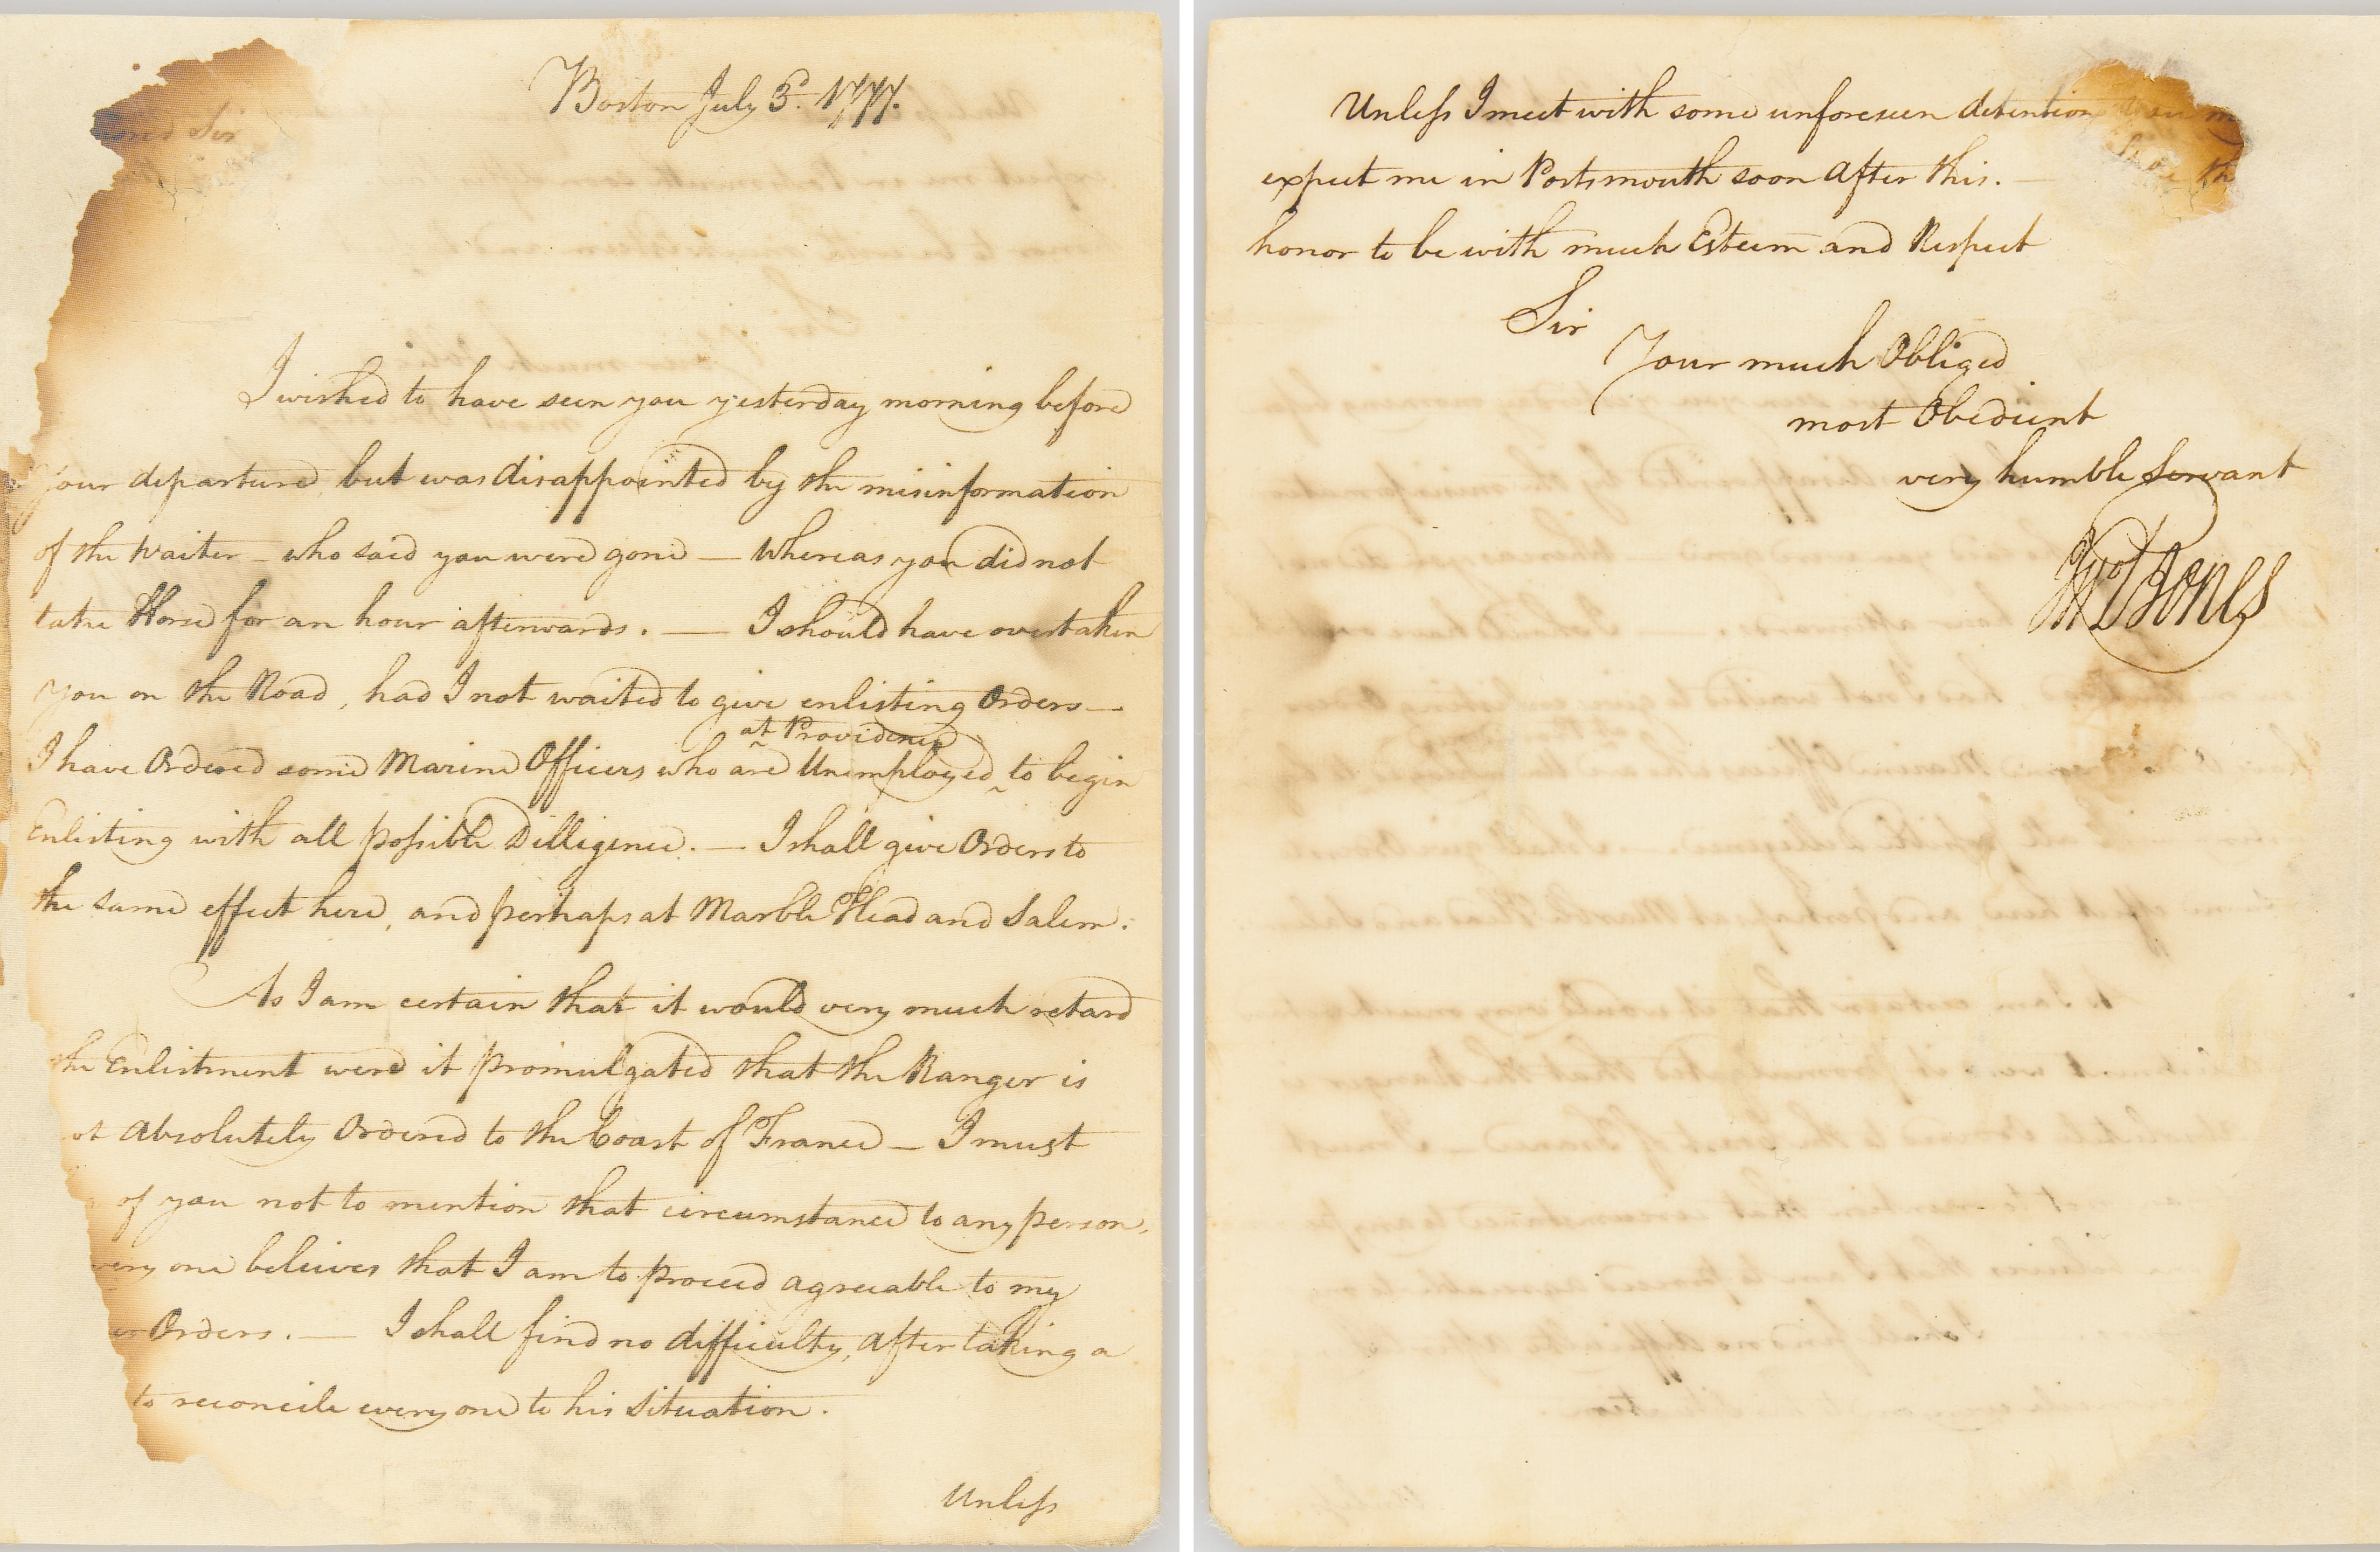 Boston July 3d. 1777.
Sir
I wished to have seen you yesterday morning before
Your departure, but was disappointed by the misinformation
of the Waiter – who said you were gone — Whereas you did not
take Horse for an hour afterwards. — I should have overtaken
you on the Road, had I not waited to give enlisting Orders —
at Providence
I have Ordered some Marine Officers who are Unemployed ^ to begin
Enlisting with all possible Dilligence. — I shall give Orders to
the same effect here, and perhaps at Marble Head and Salem.
As I am certain that it would very much retard
the Enlistment were it promulgated that the Ranger is
ot absolutely Ordered to the Coast of France — I must
of you not to mention that circumstance to any person,
very one beleives that I am to proceed agreeable to my
Orders. — I shall find no difficulty, after taking a
to reconcile every one to his Situation.
Unless
Unless I meet with some unforeseen detention
expect me in Portsmouth soon after this. —
honor to be with much Esteem and Respect
Sir
Your much Obliged
most Obedient
very humble Servant
Jno P Jones